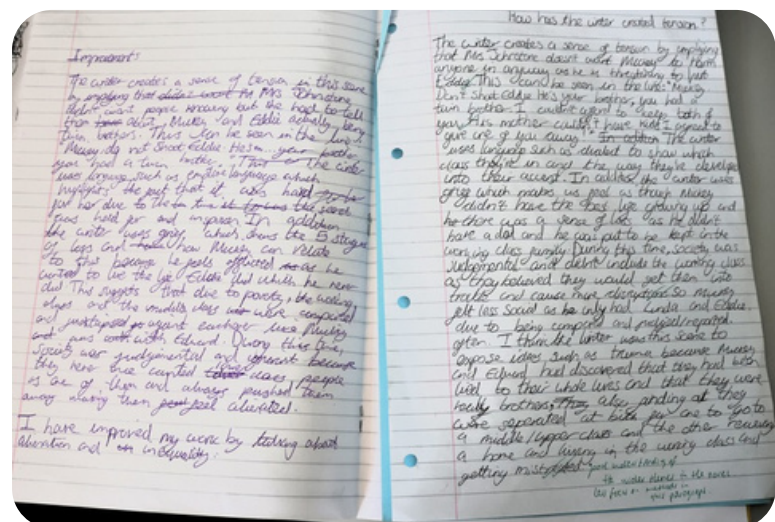 Improvements
The writer creates a sense of tension in this scene
by implying that As Mrs Johnstone
didn't want people knowing but she had to tell
them about Mickey and Eddie actually being
twin brothers. This can be seen in the line:
"Mickey do not shoot Eddie. He's.... your brother
you had a twin brother." The writer
uses language such as emotive language which
the fact that it was hard
for her due to the
was held for and in prison. In addition,
the writer uses grief, which shows the 5 stages
of loss and how Mickey can relate
to this because he feels as he
wanted to live the life Eddie did which he never
did. This suggests that due to poverty, the working
class and the middle class were compared
and against eachother like Mickey
was with Edward. During this time,
society was judgmental and because
they
as one of them and always pushed them
away making them feel alienated.
I have improved my work by talking about
alienation and inequality.
How has the writer created tension?
The writer creates a sense of tension by implying
that Mrs Johnstone doesn't want Mickey to harm
anyone in anyway as he is threatening to hurt
Eddie. This can be seen in the line: "Mickey
Don't shoot Eddie He's your brother, you had a
twin brother. I couldn't afford to keep both of
you. His mother couldn't have kids I agreed to
give one of you away." The writer
uses language such as dialect to show which
class they're in and the way they've developed
into their accent. In addition the writer uses
grief which makes us feel as though Mickey
didn't have the best life growing up and
there was a sense of loss as he didn't
have a dad and he was put to be kept in the
working class family. During this time, society was
judgmental and didn't include the working class
as they believed they would get them into
trouble and cause more disruption. So Mickey
felt less social as he only had Linda and Eddie.
due to being compared and judged/
often. I think the writer uses this scene to
expose ideas such as trauma because Mickey
and Edward had discovered that they had been
lied to their whole lives and that they were
really brothers, also finding out they
were separated at birth for one to go to
a middle/upper class and the other
a home and living in the working class and
getting
good understanding of
the
less focus on in
this paragraph